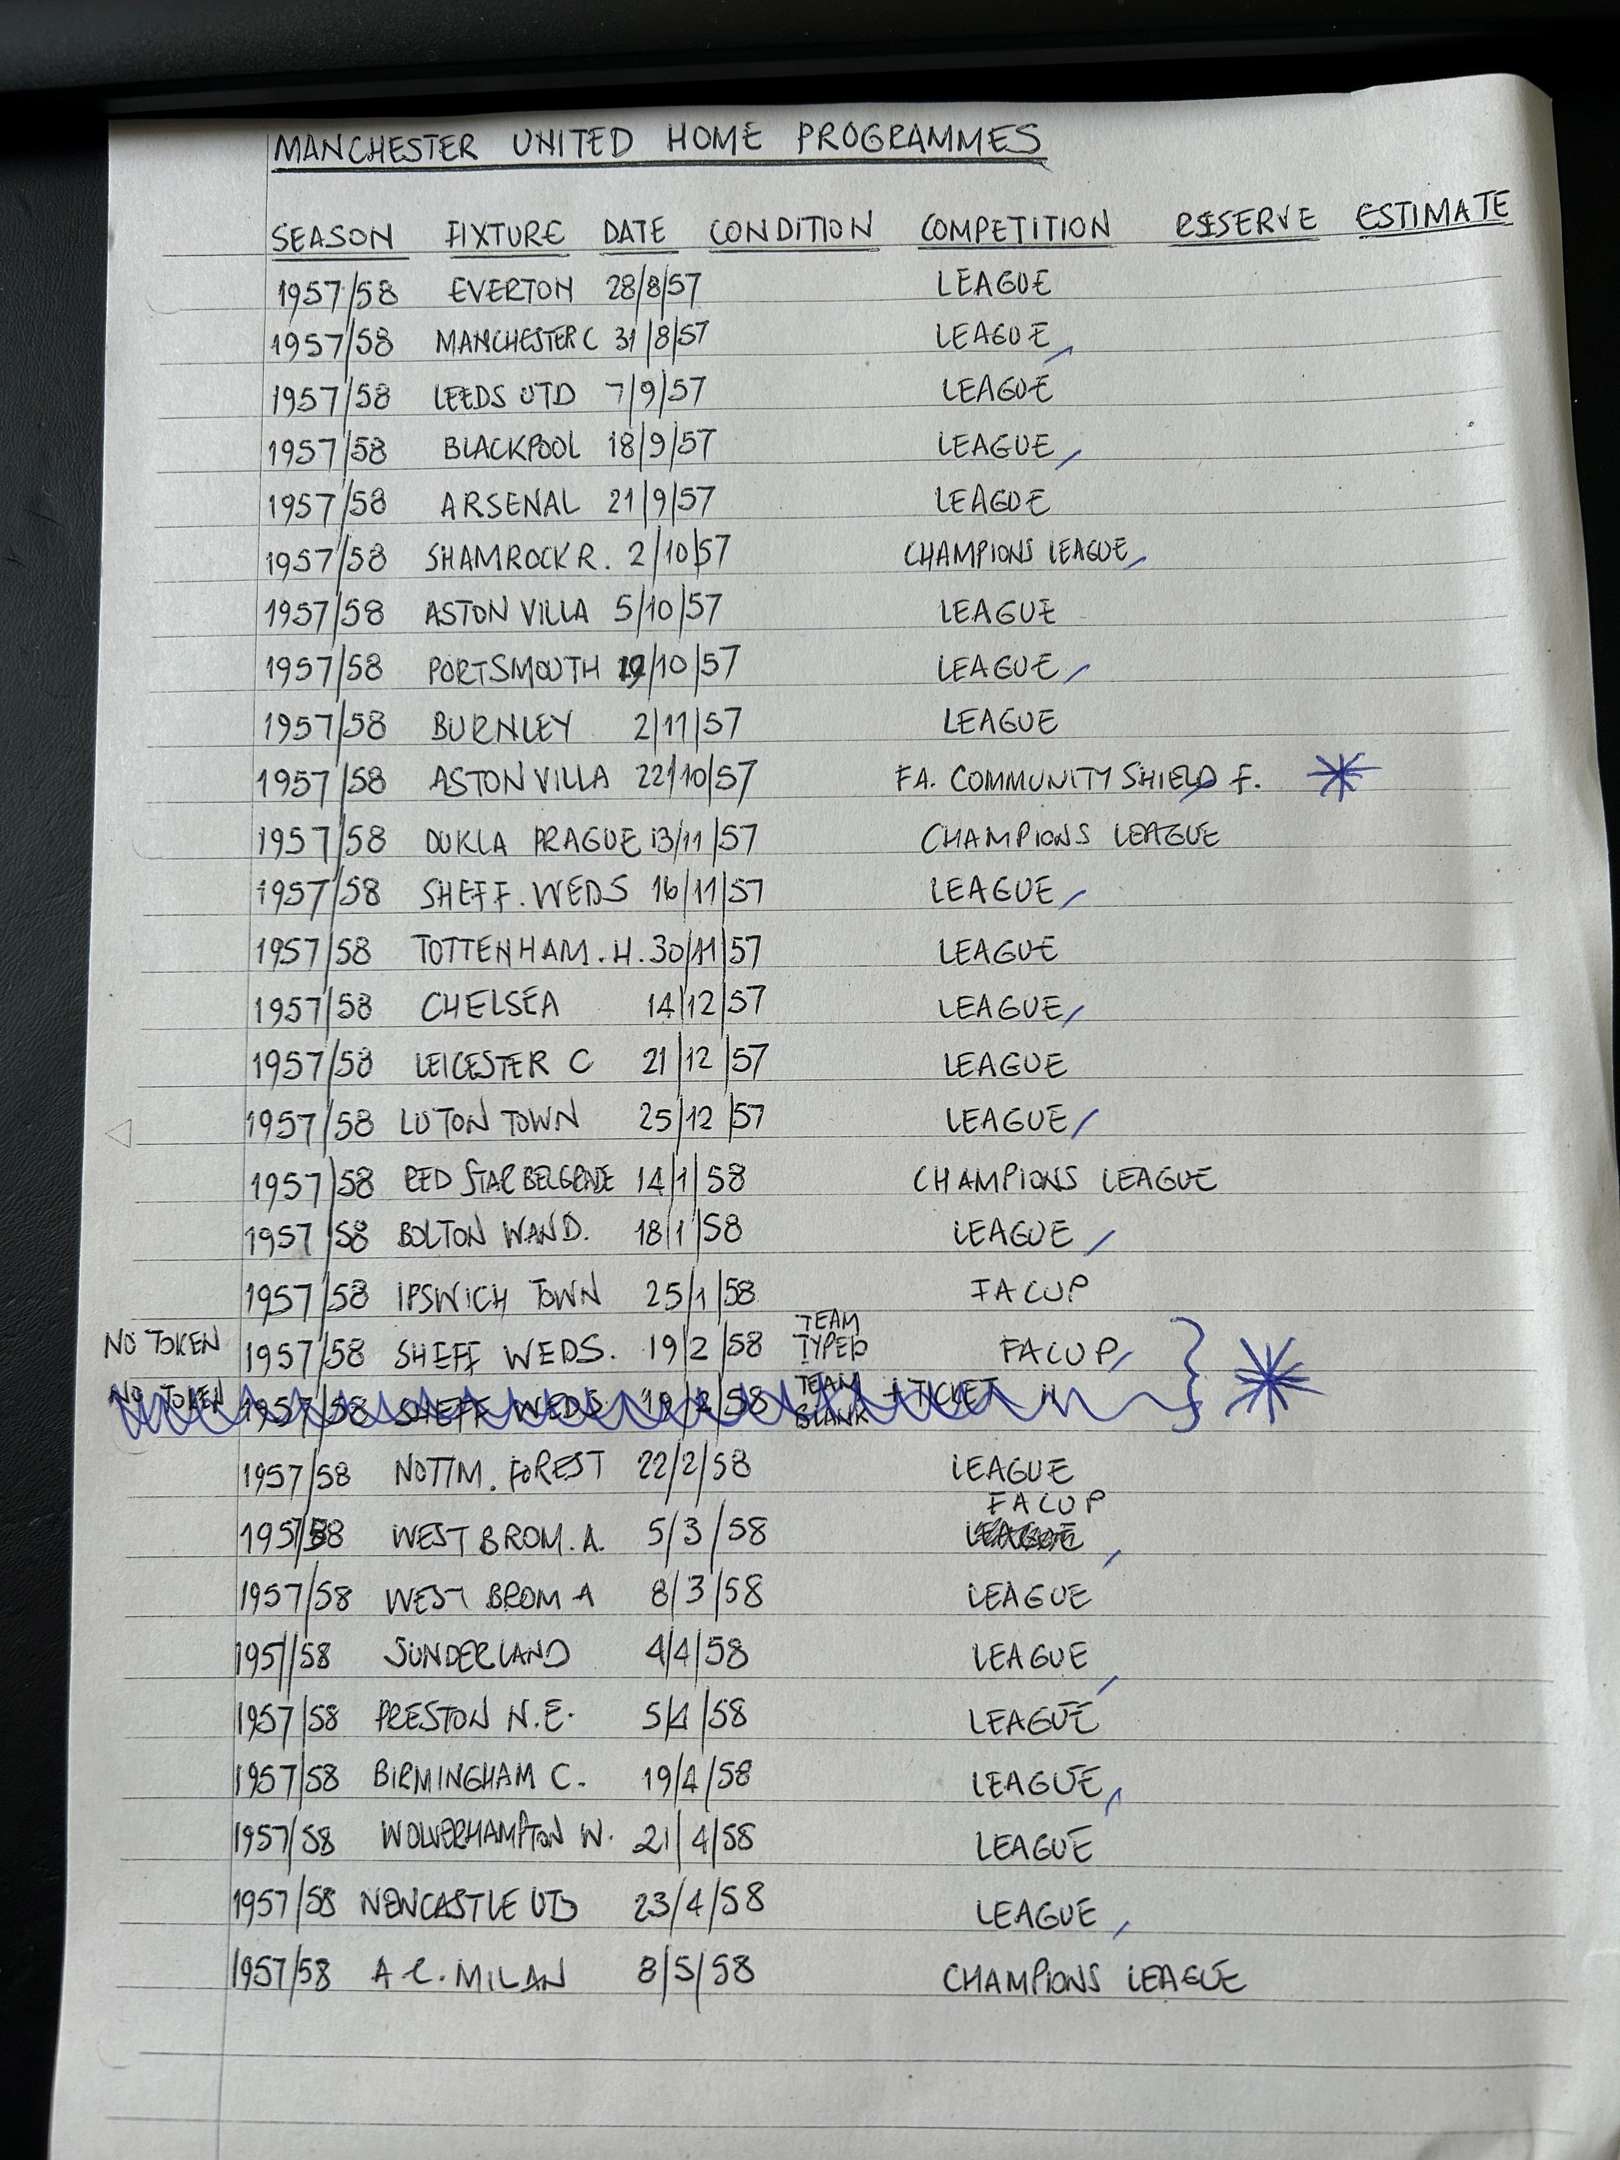 MANCHESTER UNITED HOME PROGRAMMES
SEASON FIXTURE DATE CONDITION COMPETITION RESERVE ESTIMATE
1957/58 EVERTON 28/8/57 LEAGUE
1957/58 MANCHESTER C 31/8/57 LEAGUE
1957/58 LEEDS UTD 7/9/57 LEAGUE
1957/58 BLACKPOOL 18/9/57 LEAGUE
1957/58 ARSENAL 21/9/57 LEAGUE
1957/58 SHAMROCK R. 2/10/57 CHAMPIONS LEAGUE
1957/58 ASTON VILLA 5/10/57 LEAGUE
1957/58 PORTSMOUTH 19/10/57 LEAGUE
1957/58 BURNLEY 2/11/57 LEAGUE
1957/58 ASTON VILLA 22/10/57 FA. COMMUNITY SHIELD F.
1957/58 DUKLA PRAGUE 13/11/57 CHAMPIONS LEAGUE
1957/58 SHEFF. WEDS 16/11/57 LEAGUE
1957/58 TOTTENHAM. H. 30/11/57 LEAGUE
1957/58 CHELSEA 14/12/57 LEAGUE
1957/58 LEICESTER C 21/12/57 LEAGUE
1957/58 LUTON TOWN 25/12/57 LEAGUE
1957/58 RED STAR BELGRADE 14/1/58 CHAMPIONS LEAGUE
1957/58 BOLTON WAND. 18/1/58 LEAGUE
1957/58 IPSWICH TOWN 25/1/58 FA CUP
NO TOKEN 1957/58 SHEFF WEDS. 19/2/58 TEAM TYPED FA CUP
NO TOKEN 1957/58 SHEFF WEDS 19/2/58 TEAM BLANK + TICKET "
1957/58 NOTTM. FOREST 22/2/58 LEAGUE
FA CUP
1957/58 WEST BROM. A. 5/3/58 LEAGUE
1957/58 WEST BROM A 8/3/58 LEAGUE
1957/58 SUNDERLAND 4/4/58 LEAGUE
1957/58 PRESTON N.E. 5/4/58 LEAGUE
1957/58 BIRMINGHAM C. 19/4/58 LEAGUE
1957/58 WOLVERHAMPTON W. 21/4/58 LEAGUE
1957/58 NEWCASTLE UTD 23/4/58 LEAGUE
1957/58 A C. MILAN 8/5/58 CHAMPIONS LEAGUE